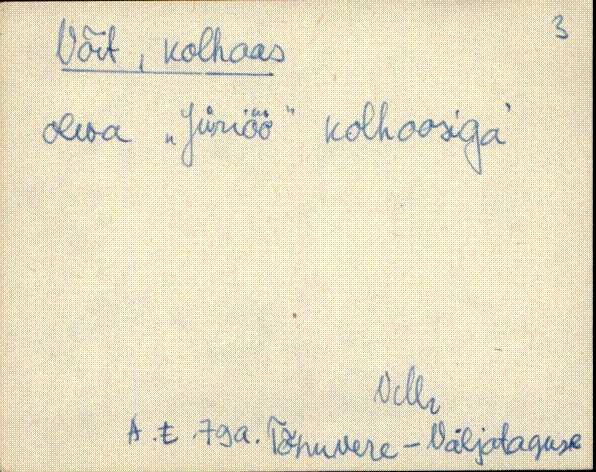 3
Võit, kolhoos
oleva „Jüriöö" kolhoosiga
A. E. 79a. Tõnuvere – Väljataguse